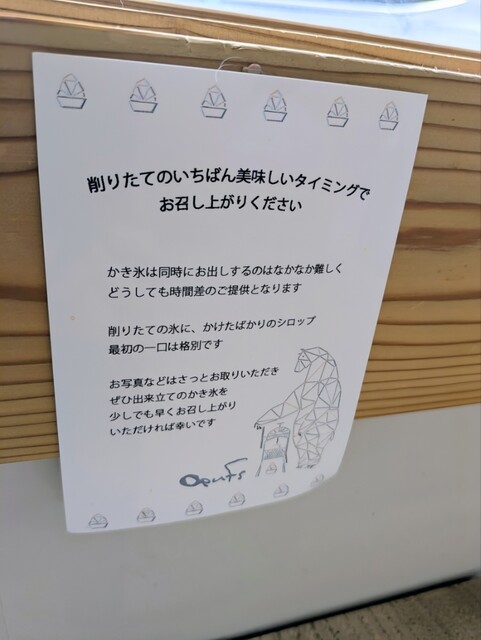 削りたてのいちばん美味しいタイミングで
お召し上がりください
かき氷は同時にお出しするのはなかなか難しく
どうしても時間差のご提供となります
削りたての氷に、かけたばかりのシロップ
最初の一口は格別です
お写真などはさっとお取りいただき
ぜひ出来立てのかき氷を
少しでも早くお召し上がり
いただければ幸いです